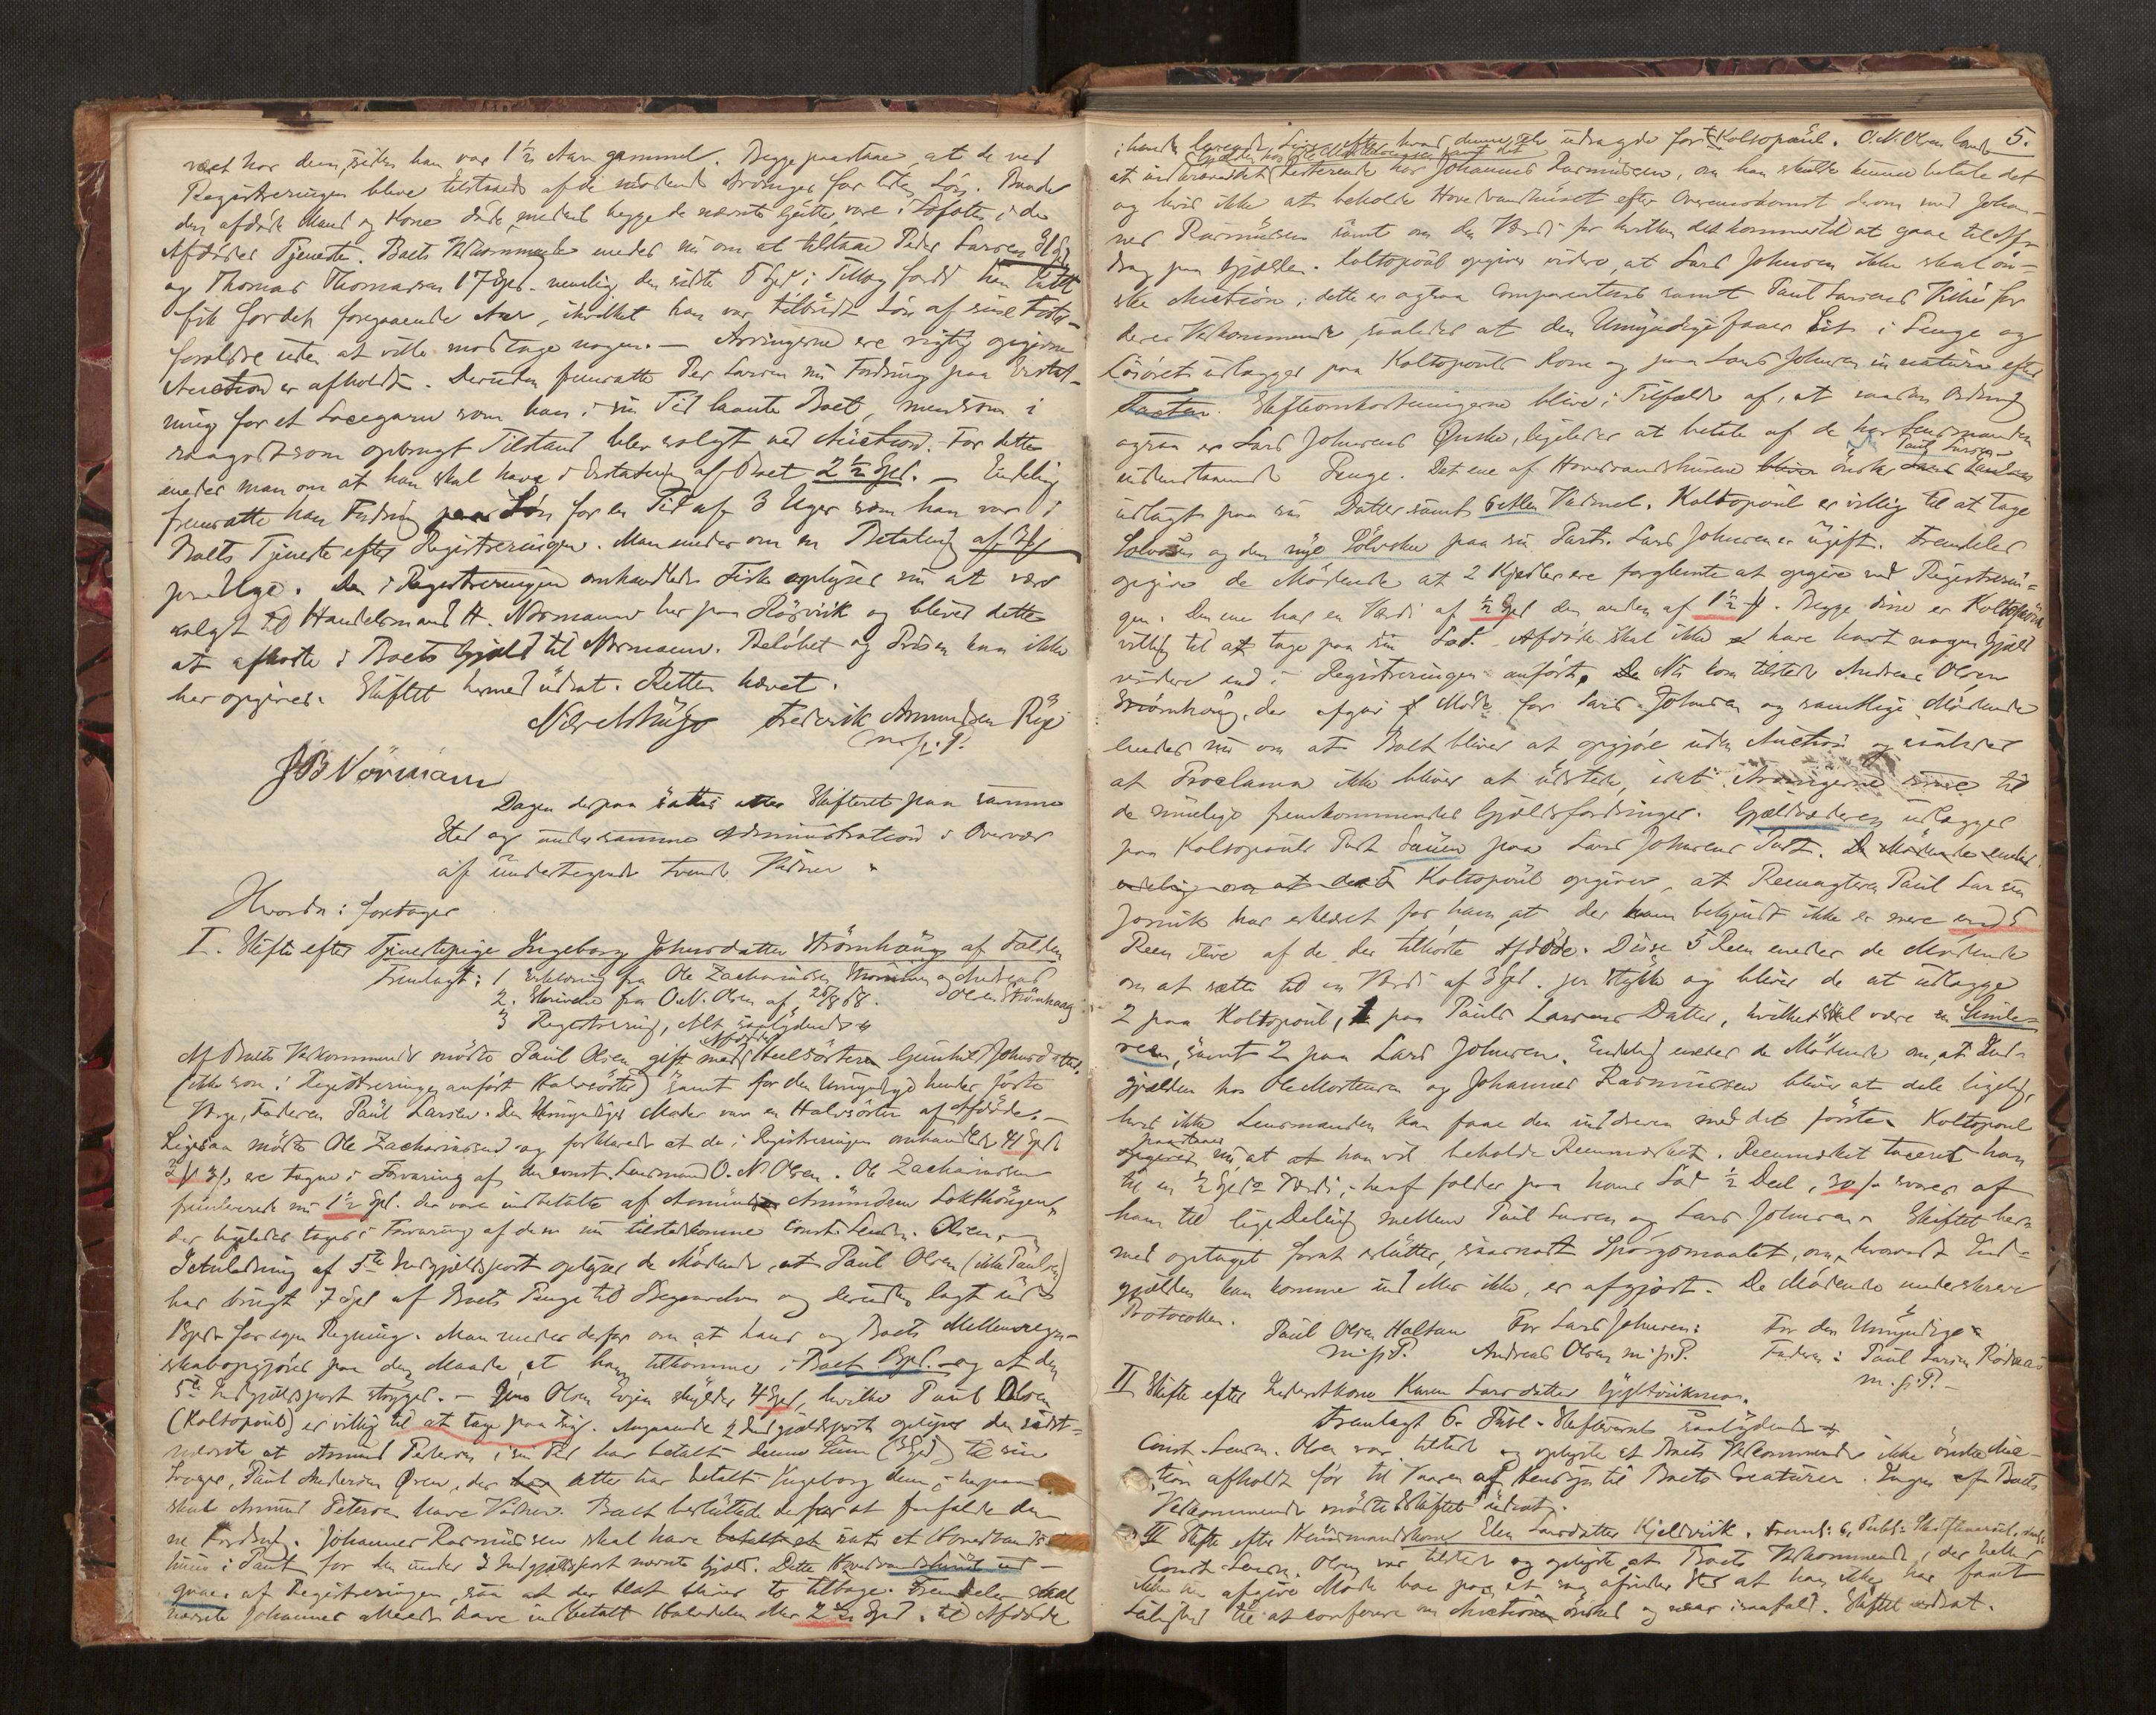 været hos dem, siden han var 1 1/2 Aar gammel. Begge paastaae, at de ved
Registreringen bleve tilstaaede af de mødende Arvinger for liden Løn. Baade
den afdøde Mand og Kone døde, medens begge de nævnte Gutter vare i Lofoten i de
Afdødes Tjeneste. Boets Vedkommende enedes nu om at tilstaae Peder Larsen
og Thomas Thomassen 17 Spd. nemlig den sidste 5 Spd. i Tillæg fordi han Intet
fik for det foregaaende Aar, ihvilket han var tilbudt Løn af sine Foster-
forældre uden at ville modtage nogen. — Arvingerne ere rigtig opgivne
Auction er afholdt. Desuden fremsatte Per Larsen sin Fordring paa Erstat-
ning for et som han i sin Tid laante Boet, men som i
saagodtsom opbrugt Tilstand blev solgt ved Auction. For dette
enedes man om at han skal have i Erstatning af Boet 2 1/2 Spd. — Endelig
fremsatte han Fordring paa Løn for en Tid af 3 Uger som han var i
Boets Tjeneste efter Registreringen. Man enedes om en Betaling af
pr. Uge. Den i Registreringen omhandlede Fisk oplyses nu at være
solgt til Handelsmand H. Normann her paa Rørvik og bliver dette
at afkorte i Boets Gjæld til Normann. Beløbet og Prisen kan ikke
her opgives. Skiftet hermed udsat. Retten hævet.
Frederik Amundsen
m. p. P.
JB Normann
Dagen derpaa sattes atter Skifteret paa samme
Sted og under samme Administration i Overvær
af undertegnede tvende Vidner.
Hvorda: foretages
I. Skifte efter Tjenestepige Ingeborg Johnsdatter Strømhaug af Folden
Fremlagt: 1 Erklæring fra Ole Zachariassen Strømmen og Andreas
Olsen Strømhaug
2. Skrivelse fra O. N. Olsen af 26/8 68.
3 Registrering, Alt saalydende
Af Boets Vedkommende mødte Paul Olsen gift med Afdødes Helsøster Gunhild Johnsdatter,
(ikke som i Registreringen anført Halvsøster) samt for den Umyndige hendes første
Værge, Faderen Paul Larsen. Den Umyndiges Moder var en Halvsøster af Afdøde. —
Ligesaa mødte Ole Zachariassen og forklarede at de i Registreringen omhandlede 41 Spd.
ere tagne i Forvaring af den const. Lensmand O. N. Olsen. Ole Zachariassen
fremleverede nu 1 1/2 Spd. der vare indbetalte af Amundsen
der ligeledes toges i Forvaring af den nu tilstedekomne const. Lensm. Olsen.
I Anledning af 5te Indgjældspost oplyser de Mødende, at Paul Olsen (ikke Paulsen)
har brugt 7 Spd. af Boets Penge til Begravelsen og desuden lagt ud
Spd. for egen Regning. Man enedes derfor om at hans og Boets Mellemregn-
skab opgjøres paa den Maade, at han tilkommer i Boet Spd. — og at den
5te Indgjældspost stryges. — Jens Olsen skylder 4 Spd., hvilke Paul Olsen
(Koltopaul) er villig til at tage paa sig. Angaaende 2 Indgjældspost oplyser den sidst-
nævnte at Amund Pedersen i sin Tid har betalt denne Sum (3 Spd.) til sin
Svoger, Paul Andersen Øren, der atter har betalt Ingeborg dem; herpaa
skal Amund Petersen have Vidner. Boet besluttede derfor at frafalde den-
ne Fordring. Johannes Rasmussen skal have sat et Hovedvandshuus
i Pant for den under 3 Indgjældspost nævnte Gjæld. Dette Hovedvandshuus ud-
gaaer af Registreringen, saa at der blot bliver to tilbage. Fremdeles skal
nævnte Johannes allerede have indbetalt Halvdelen eller 2 1/2 Spd. til Afdøde

5.
i hendes levende Live efter hvad denne selv udsagde for Koltopaul. O. N. Olsen lovede
at inddrive det resterende hos Johannes Rasmussen, om han skulde kunne betale det
og hvis ikke at beholde Hovedvandshuset efter Overenskomst derom med Johan-
nes Rasmussen samt om den Værdi for hvilken det kommer til at gaae til Af-
drag paa Gjælden. Koltopaul opgiver videre, at Lars Johnsen ikke skal øn-
ske Auction; dette er ogsaa Comparentens samt Paul Larsens Villie for
deres Vedkommende, saaledes at den Umyndige faaer Sit i Penge og
Løsøret udlægges paa Koltopauls Kone og paa Lars Johnsen in natura efter
Taxten. Skifteomkostningerne blive i Tilfælde af, at saadan Ordning
ogsaa er Lars Johnsens Ønske, ligeledes at betale af de hos Lensmanden
indestaaende Penge. Det ene af Hovedvandshusene ønsker Paul Larsen
udlagt paa sin Datter samt 6 Alen Vadmel. Koltopaul er villig til at tage
Sølv og den nye Sølvske paa sin Part. Lars Johnsen er ugift. Fremdeles
opgive de Mødende at 2 Kjedler ere forglemte at opgive ved Registrerin-
gen. Den ene har en Værdi af 1/2 Spd. den anden af 1 1/2 . Begge disse er Koltopaul
villig til at tage paa sin Lod. Afdøde skal ikke have havt nogen Gjæld
videre end i Registreringen anført. Nu kom tilstede Andreas Olsen
Strømhaug, der afgav Møde for Lars Johnsen og samtlige Mødende
enedes nu om at Boet bliver at opgjøre uden Auction og saaledes
at Proclama ikke bliver at udstede, idet Arvingerne svare til
de mulige fremkommende Gjældsfordringer. Gjældvæderen udlægges
paa Koltopauls Part Sauen paa Lars Johnsens Part.
Koltopaul opgiver, at Rensvogteren Paul Larsen
har erklæret for ham, at der ham bekjendt ikke er mere end 5
Reen ilive af de der tilhørte Afdøde. Disse 5 Reen enedes de Mødende
om at sætte til en Værdi af 3 Spd. pr. Stykke og bliver de at udlægge
2 paa Koltopaul, 1 paa Pauls Larsens Datter, hvilket skal være en Simle-
reen, samt 2 paa Lars Johnsen. Endelig enedes de Mødende om, at Ind-
gjælden hos Ole Mortensen og Johannes Rasmussen bliver at dele ligelig,
hvis ikke Lensmanden kan faae den inddreven med det første. Koltopaul
paastaaer nu at han vil beholde Reenmærket. Reenmærket taxeres han
til en 1/2 Spd. Værdi; heraf falder paa hans Lod 1/2 Deel, 30 s. svares af
ham til lige Deling mellem Paul Larsen og Lars Johnsen. Skiftet her-
med optaget forat slutte, saasnart Spørgsmaalet, om hvorvidt Ind-
gjælden kan komme ind eller ikke, er afgjort. De Mødende underskreve
Protocollen.
Paul Olsen Holtan
m. p. P.
For Lars Johnsen:
Andreas Olsen m. p. P.
For den Umyndige
Faderen: Paul Larsen
m. p. P. —
II Skifte efter Inderstkone Karen Larsdatter
Fremlagt 6. Publ. Skiftevarsel saalydende
Const. Lensm. Olsen var tilstede og oplyste at Boets Vedkommende ikke ønske Auc-
tion afholdt før til Vaaren af Hensyn til Boets Creaturer. Ingen af Boets
Vedkommende mødte. Skiftet udsat.
III Skifte efter Huusmandskone Elen Larsdatter Kjeldvik.
Const. Lensm. Olsen var tilstede og oplyste, at Boets Vedkommende, der heller
ikke afgive Møde at han ikke har faaet
Leilighed til at conferere om Auction ønskes og naar isaafald. Skiftet udsat.